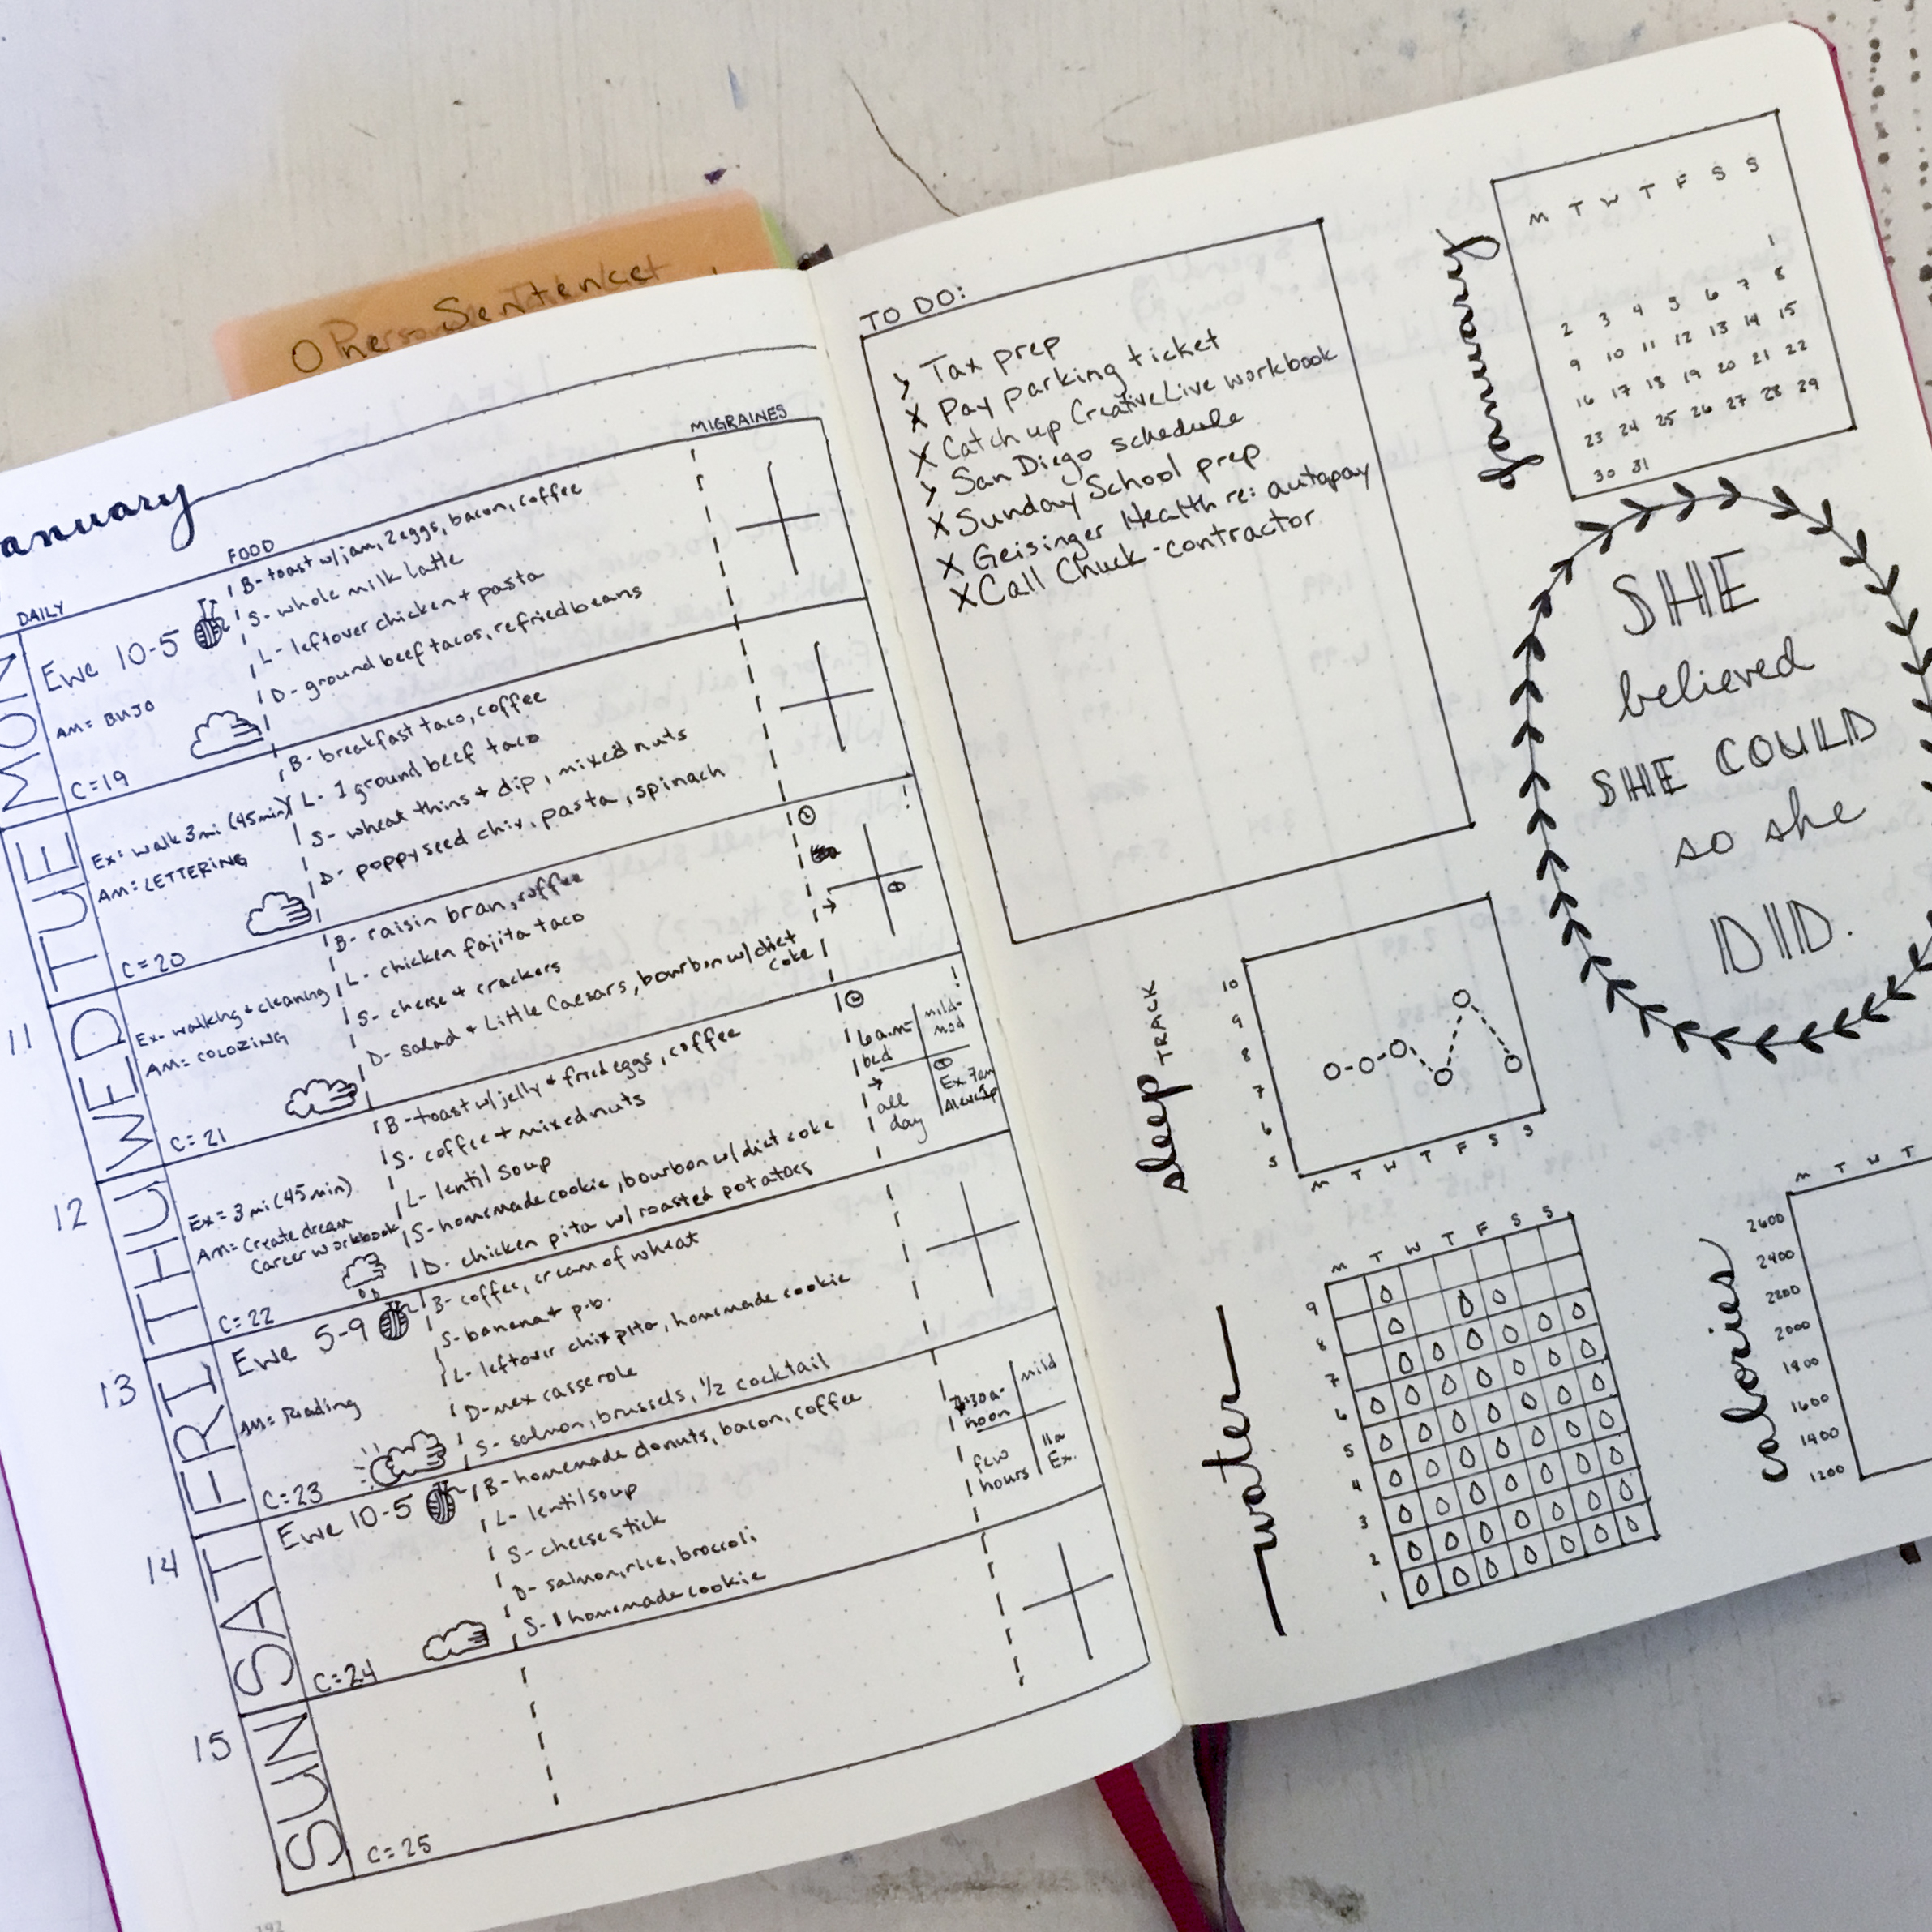 O Personal
Sentence
anuary
DAILY
FOOD
MIGRAINES
MON
Ewe 10-5
AM= BUJO
C=19
B- toast w/jam, 2eggs, bacon, coffee
S- whole milk latte
L- leftover chicken + pasta
D- ground beef tacos, refried beans
TUE
Ex: walk 3mi (45min)
AM: LETTERING
C=20
B- breakfast taco, coffee
L- 1 ground beef taco
S- wheat thins + dip, mixed nuts
D- poppyseed chix, pasta, spinach
11
WED
Ex- walking + cleaning
AM= COLOZING
C=21
B- raisin bran, coffee
L- chicken fajita taco
S- cheese + crackers
D- salad + Little Caesars, bourbon w/diet
coke
!
12
THU
Ex= 3mi (45min)
AM= Create dream
Career workbook
C=22
B- toast w/jelly + fried eggs, coffee
S- coffee + mixed nuts
L- lentil soup
S- homemade cookie, bourbon w/diet coke
D- chicken pita w/ roasted potatoes
!
6a.m-
bed
mild-
mod
→
all
day
Ex 7am
13
FRI
Ewe 5-9
AM= Reading
C=23
B- coffee, cream of wheat
S- banana + p.b.
L- leftover chix pita, homemade cookie
D- mex casserole
S- salmon, brussels, 1/2 cocktail
14
SAT
Ewe 10-5
C=24
B- homemade donuts, bacon, coffee
L- lentil soup
S- cheese stick
D- salmon, rice, broccoli
S- 1 homemade cookie
7:30a-
noon
mild
few
hours
11a
Ex.
15
SUN
C=25
192
TO DO:
> Tax prep
X Pay parking ticket
X Catch up CreativeLive workbook
> San Diego schedule
X Sunday School prep
X Geisinger Health re: autopay
X Call Chuck-contractor
January
M T W T F S S
1
2 3 4 5 6 7 8
9 10 11 12 13 14 15
16 17 18 19 20 21 22
23 24 25 26 27 28 29
30 31
SHE
believed
SHE COULD
so she
DID.
sleep TRACK
10
9
8
7
6
5
M T W T F S S
water
M T W T F S S
9
8
7
6
5
4
3
2
1
calories
M T W T
2600
2400
2200
2000
1800
1600
1400
1200